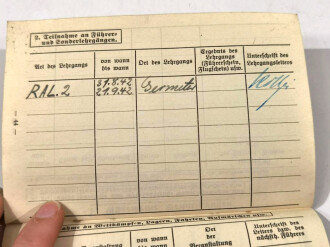 3. Teilnahme an Führer-
und Sonderlehrgängen.
Art des Lehrgangs
von wann
bis wann
Ort des Lehrgangs
Ergebnis des
Lehrgangs
(Führerschein,
Flugschein) usw.
Unterschrift des
Lehrgangsleiters
RAL. 2
31.8.42
21.9.42
— 14 —
me an Wettkämpfen, Lagern, Fahrten,
von wann
bis wann
Ort
der
Veranstaltung
Unterschrift des
Leiters bzw. des
nächsth. Führers